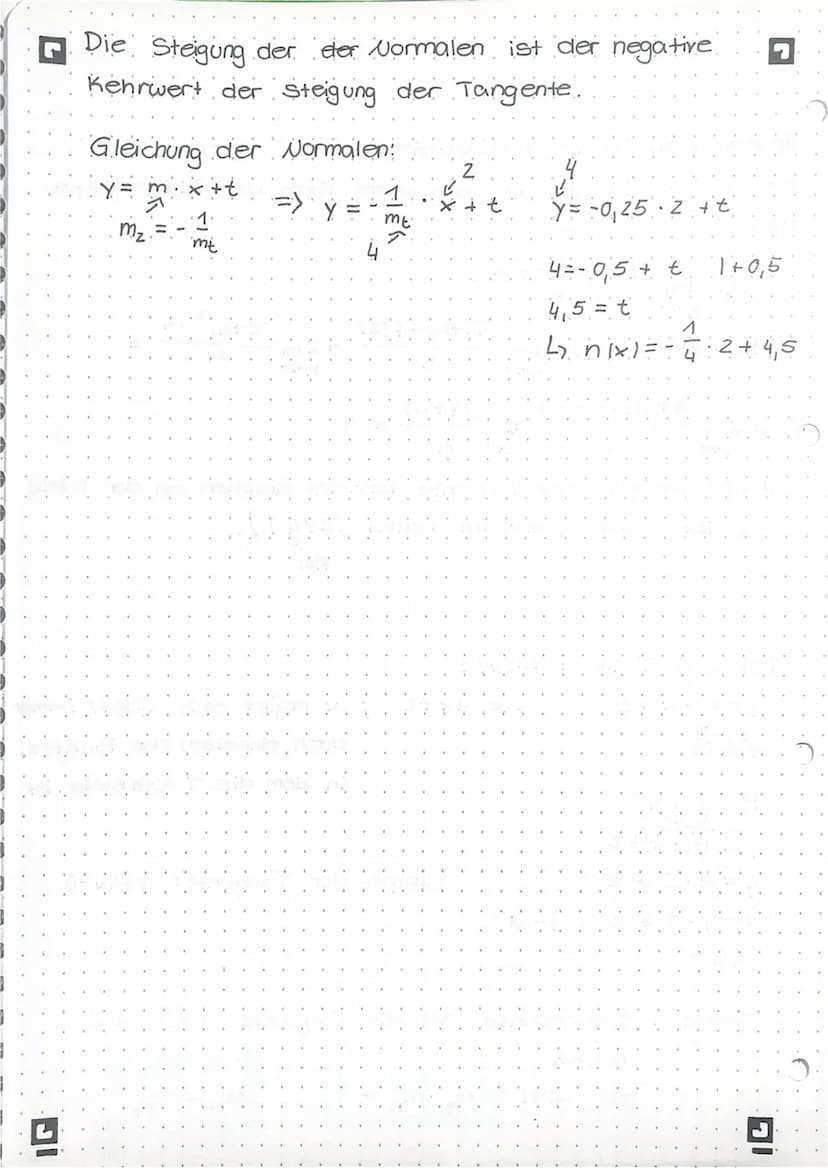 Die Steigung der der Normalen ist der negative
Kehrwert der Steigung der Tangente.
Gleichung der Normalen:
y = m · x + t
m₂ = - 1/mt
=> y = - 1/mt · x + t
2
4
4
y = -0,25 · 2 + t
4 = -0,5 + t |+0,5
4,5 = t
↳ n(x) = - 1/4 · 2 + 4,5